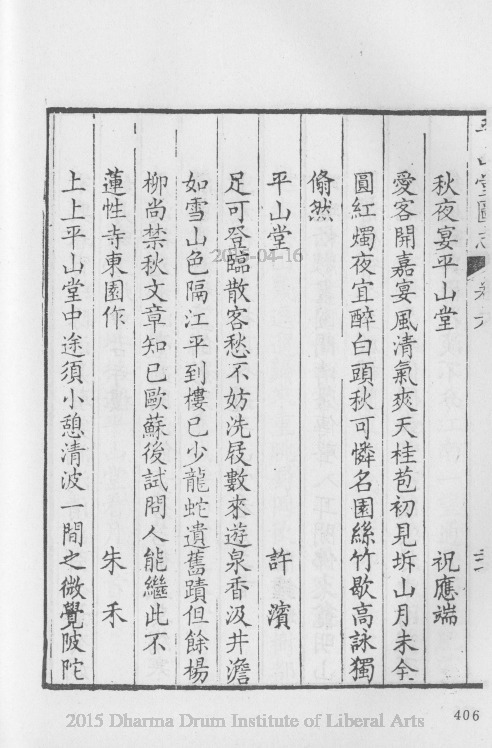 秋夜宴平山堂 祝應端
愛客開嘉宴風清氣爽天桂苞初見坼山月未全
圓紅燭夜宜醉白頭秋可憐名園絲竹歇高詠獨
翛然
平山堂 許濱
足可登臨散客愁不妨洗屐數來遊泉香汲井澹
如雪山色隔江平到樓已少龍蛇遺舊蹟但餘楊
柳尚禁秋文章知己歐蘇後試問人能繼此不
蓮性寺東園作 朱禾
上上平山堂中途須小憩清波一間之微覺陂陀
406
2015 Dharma Drum Institute of Liberal Arts